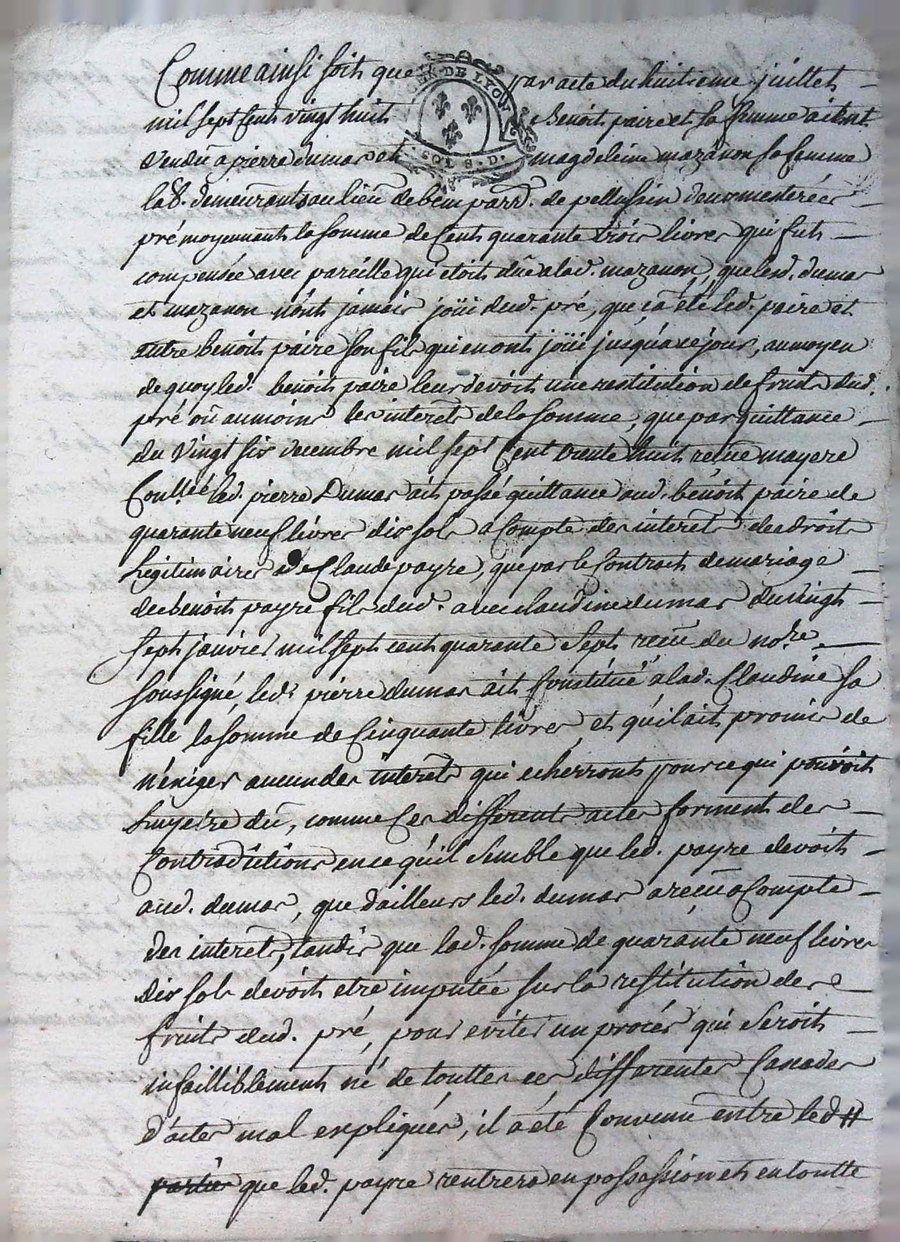 Comme ainsi soit que par acte du huitieme juillet
GEN. DE LYON
mil sept cent vingt huit Benoit paire et sa femme aient
vendu a pierre dumas et magdeleine mazanon sa femme
SOLS. D.
lad. demeurants au lieu de parr. de pellussin
pré moyennant la somme de Cent quarante trois livres qui fut
compensée avec pareille qui etoit düe a lad. mazanon, que lesd. dumas
et mazanon n'ont jamais joüi dud. pré, que ça été led. paire et
autre benoit paire son fils qui en ont joüi jusqu'a ce jour, au moyen
de quoy led. benoit paire leur devoit une restitution de fruits dud.
pré ou au moins les interets de la somme, que par quittance
du vingt six decembre mil sept Cent trente huit recüe mayere
Coullée led. pierre Dumas ait passé quittance aud. benoit paire de
quarante neuf livres dix sols a Compte des interets des droits
Legitimaires de Claude payre, que par le Contrat de mariage
de benoit payre fils dud. avec claudine dumas du vingt
sept janvier mil sept cent quarante sept recu du nore
soussigné, led. pierre dumas ait Constitué a lad. Claudine sa
fille la somme de Cinquante livres, et qu'il ait promis de
n'exiger aucun des interets qui echerront pour ce qui pouvoit
luy etre dû, comme Ces differents actes forment des
Contradictions en ce qu'il semble que led. payre devoit
aud. dumas, que d'ailleurs led. dumas a recu a Compte
des interets, tandis que lad. somme de quarante neuf livres
dix sols devoit etre imputée sur la restitution des
fruits dud. pré, pour eviter un procés qui seroit
infailliblement né de touttes ces differentes
d'actes mal expliqués, il a été Convenu entre lesd #
parties que led. payre rentrera en possession et en toutte